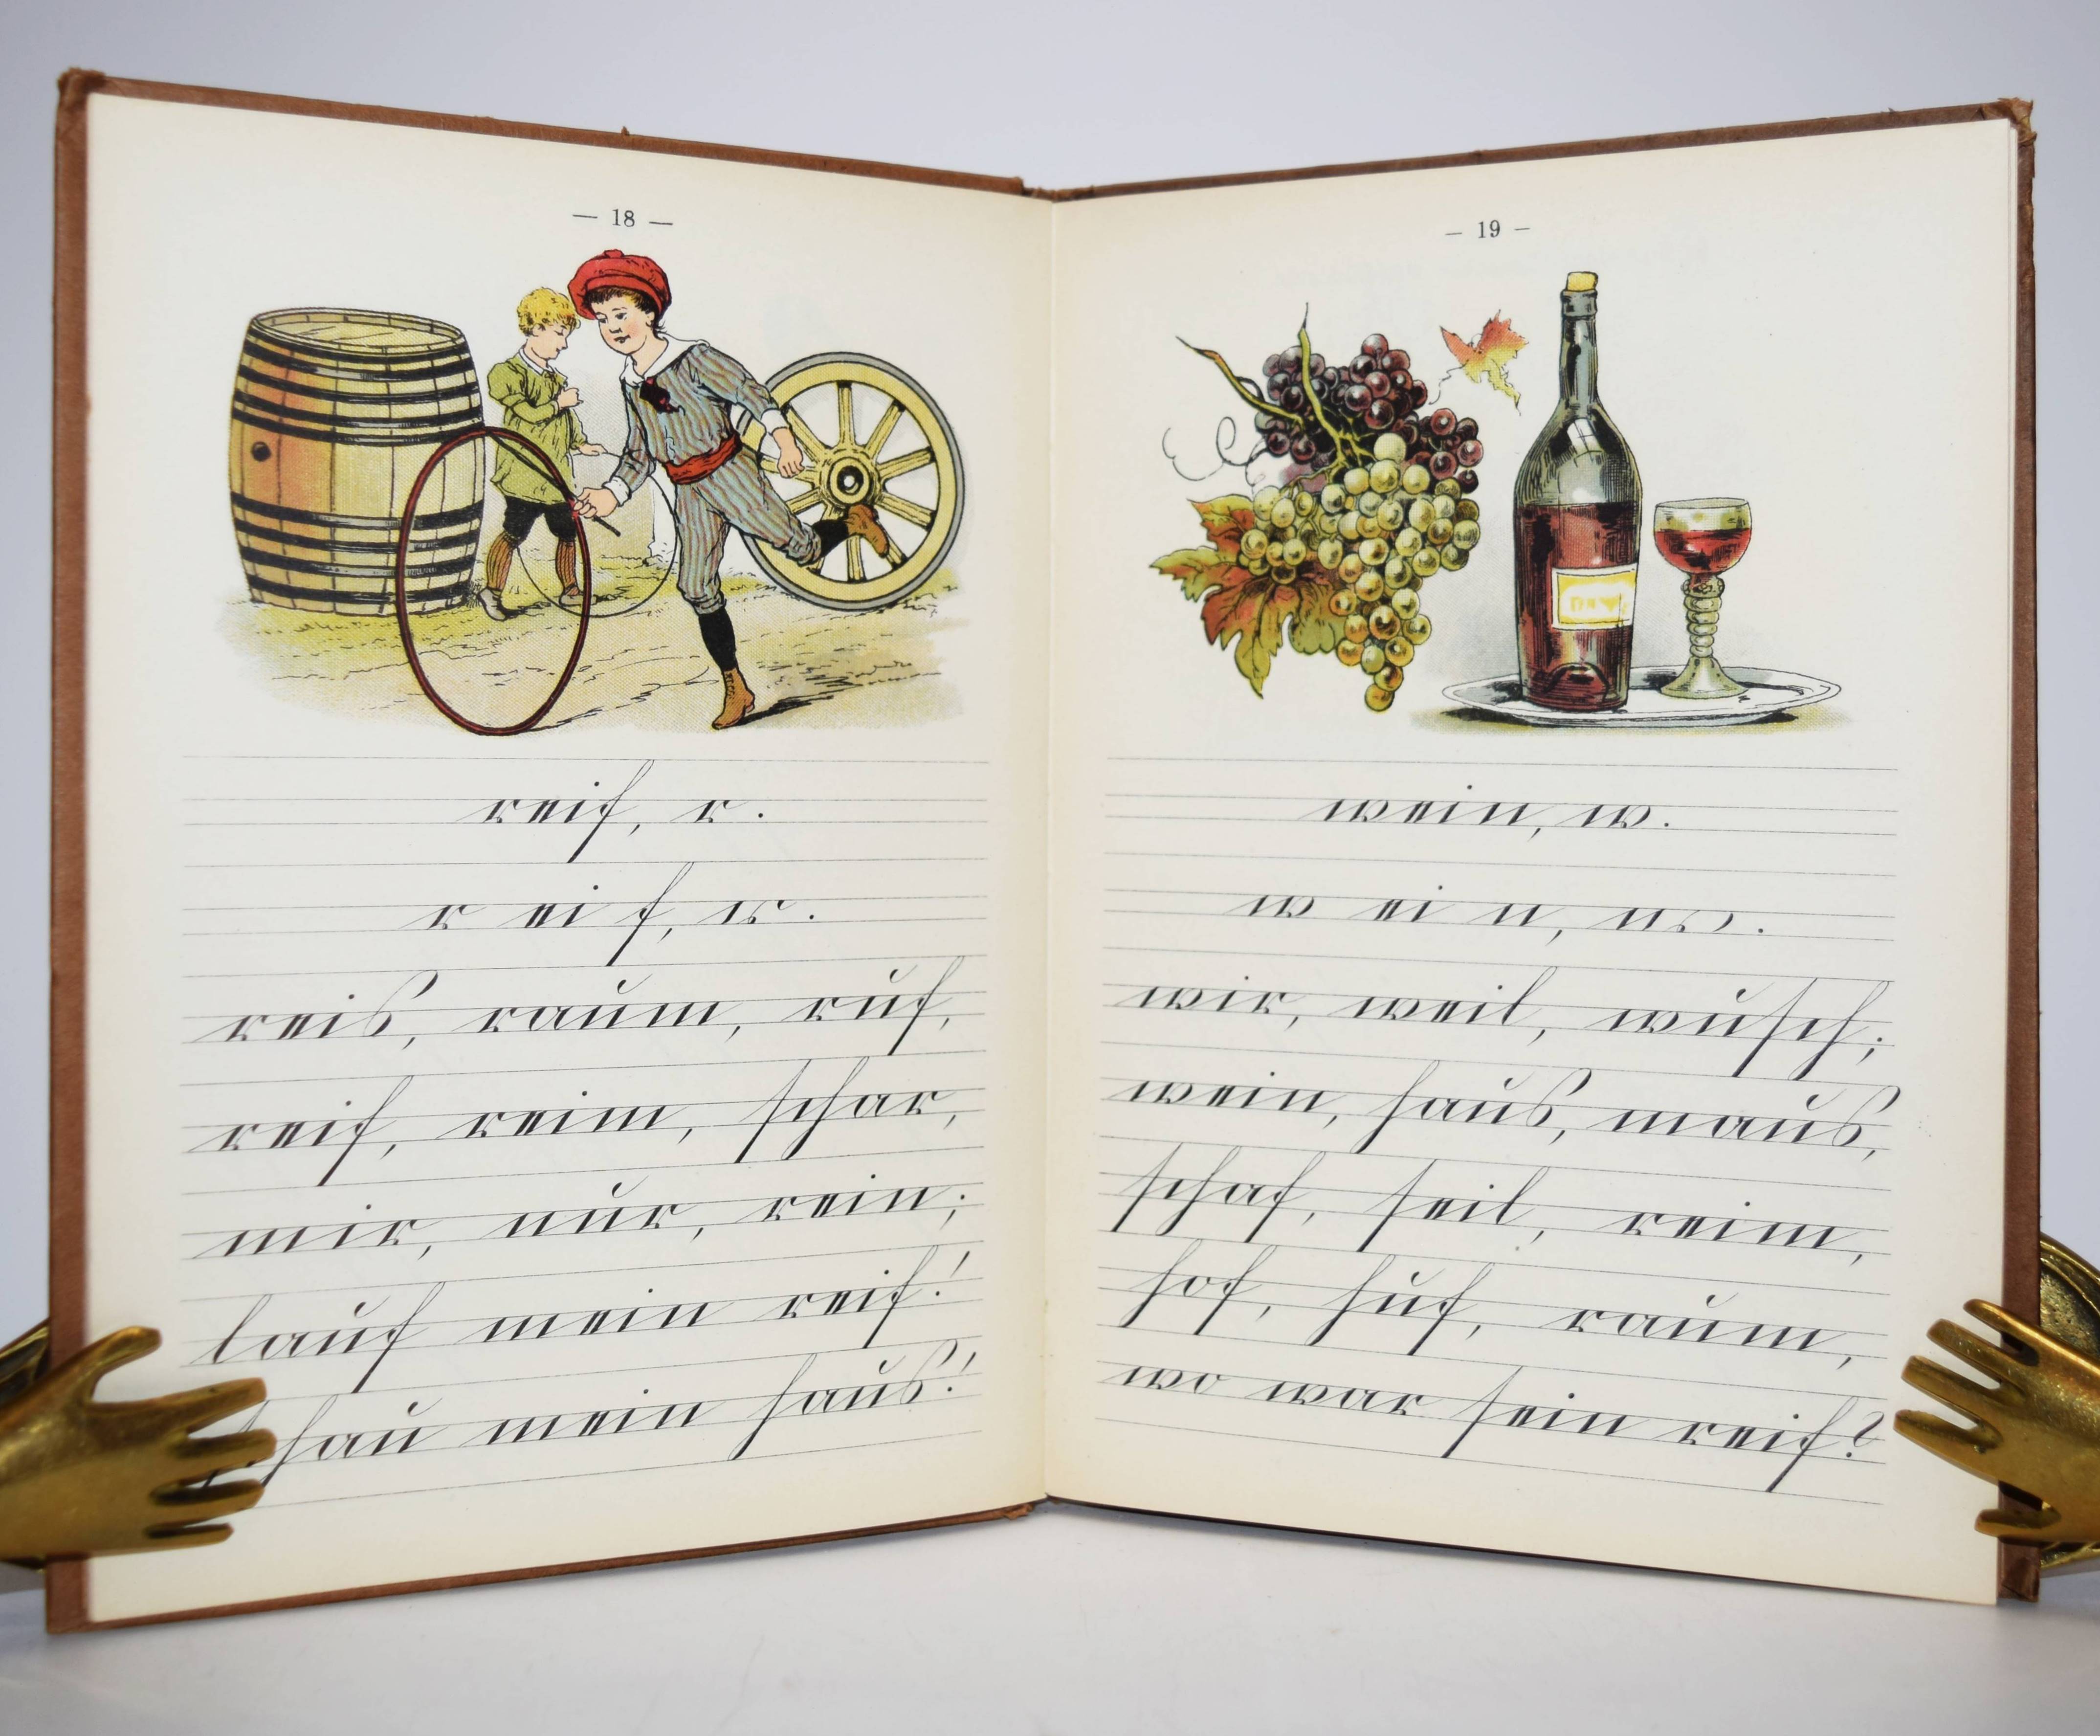 — 18 —
reif, r.
r ei f, r.
reis, raum, ruf,
reif, reim, schar,
mir, nur, rein;
lauf mein reif!
schau mein haus!
— 19 —
wein, w.
w ei n, w.
wir, weil, wusch;
wein, haus, maus,
schaf, seil, reim,
hof, huf, raum,
wo war sein reif?